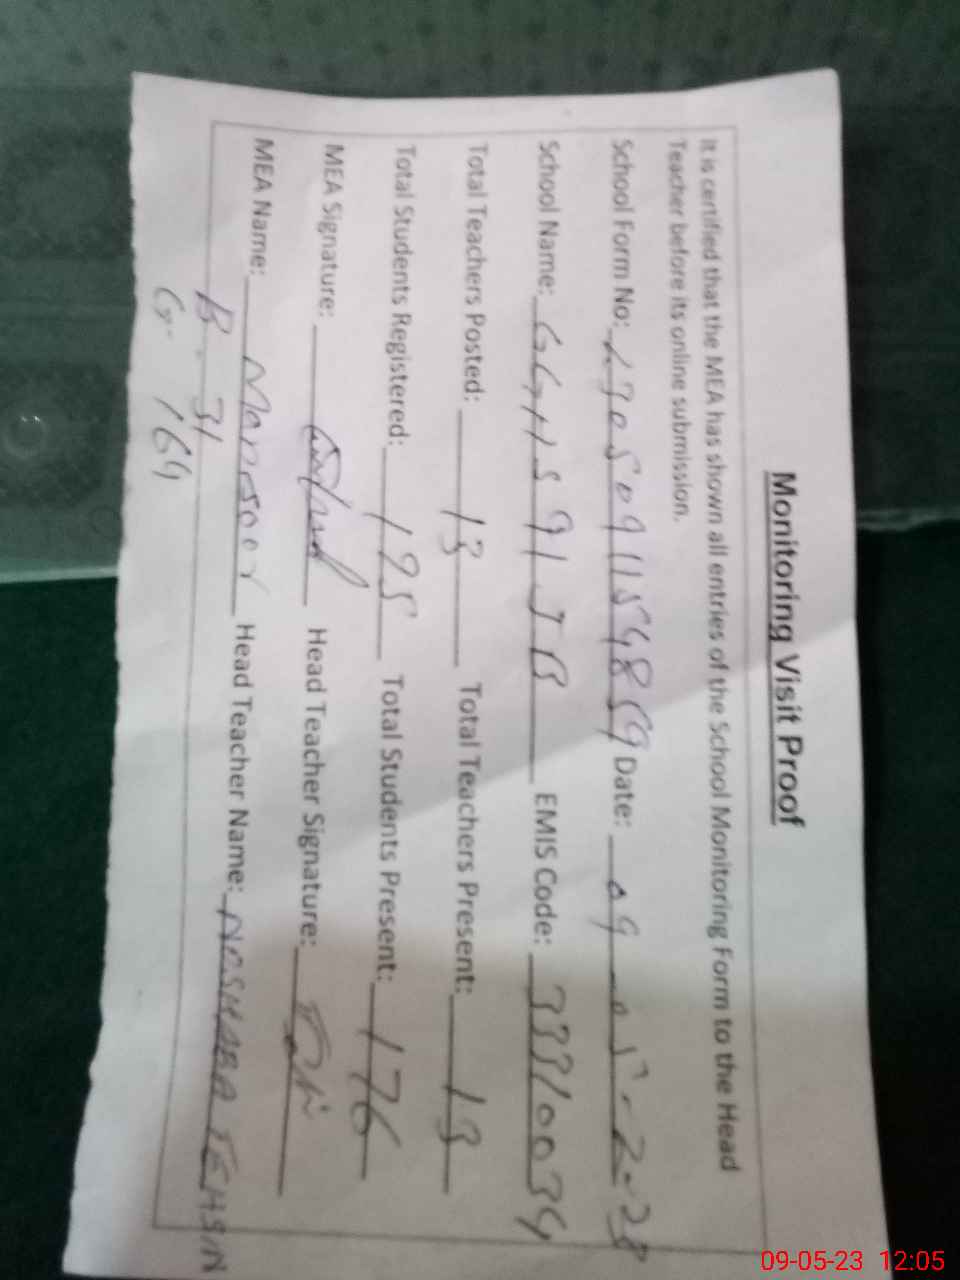 Monitoring Visit Proof
It is certified that the MEA has shown all entries of the School Monitoring Form to the Head
Teacher before its online submission.
School Form No: Date: 09-05-2023
School Name: GGHS 91 JB EMIS Code: 33310034
Total Teachers Posted: 13 Total Teachers Present: 13
Total Students Registered: 195 Total Students Present: 176
MEA Signature: Head Teacher Signature:
MEA Name: Mansoor Head Teacher Name: NOSHABA TEHSIN
B - 31
G - 164
09-05-23 12:05